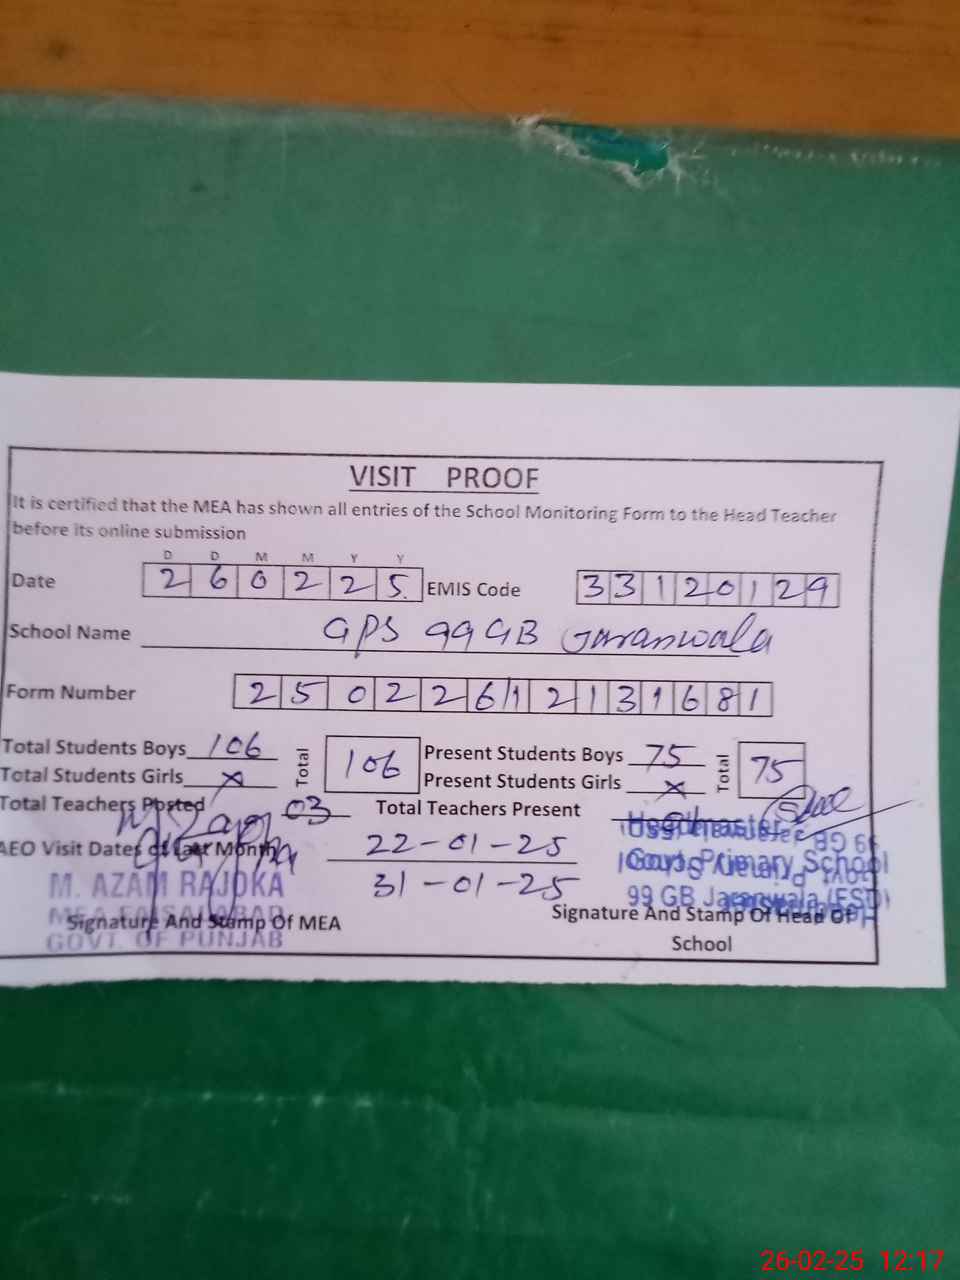 VISIT PROOF
It is certified that the MEA has shown all entries of the School Monitoring Form to the Head Teacher
before its online submission
D D M M Y Y
Date 2 6 0 2 2 5 EMIS Code 3 3 1 2 0 1 2 9
School Name GPS 99 GB Jaranwala
Form Number 2 5 0 2 2 6 1 2 1 3 1 6 8 1
Total Students Boys 106 Total 106 Present Students Boys 75 Total 75
Total Students Girls x Present Students Girls x
Total Teachers Posted 03 Total Teachers Present
AEO Visit Dates of Last Month 22-01-25
31-01-25
M. AZAM RAJOKA
MEA FAISALABAD
GOVT. OF PUNJAB
Signature And Stamp Of MEA
Headmaster
Govt. Primary School
99 GB Jaranwala (FSD)
Signature And Stamp Of Head Of
School
26-02-25 12:17